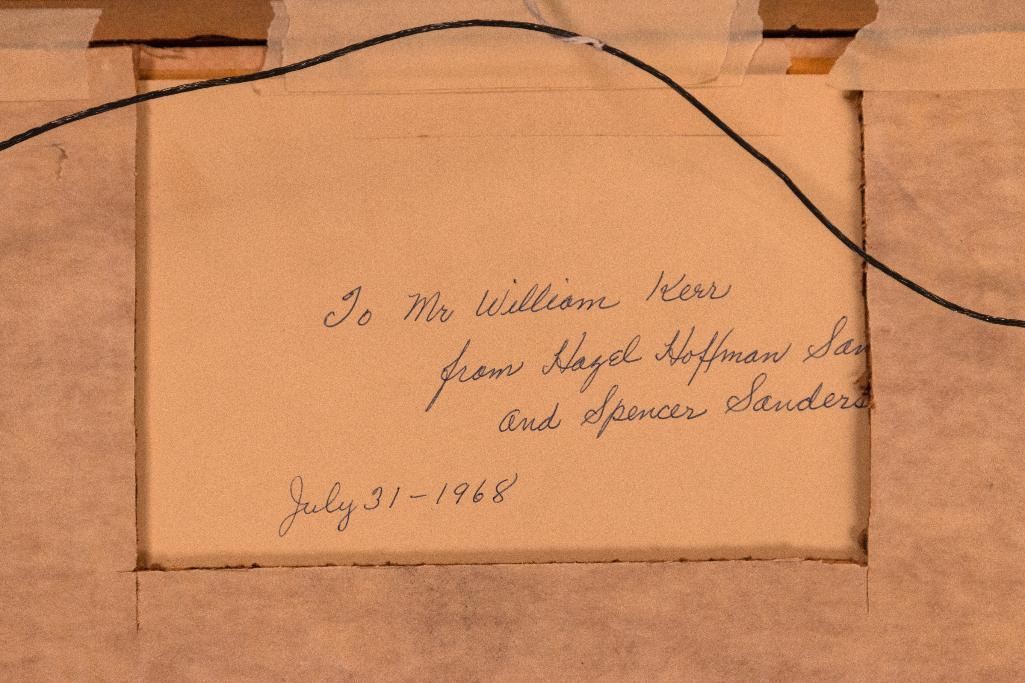 To Mr William Kerr
from Hazel Hoffman San
and Spencer Sanders
July 31-1968